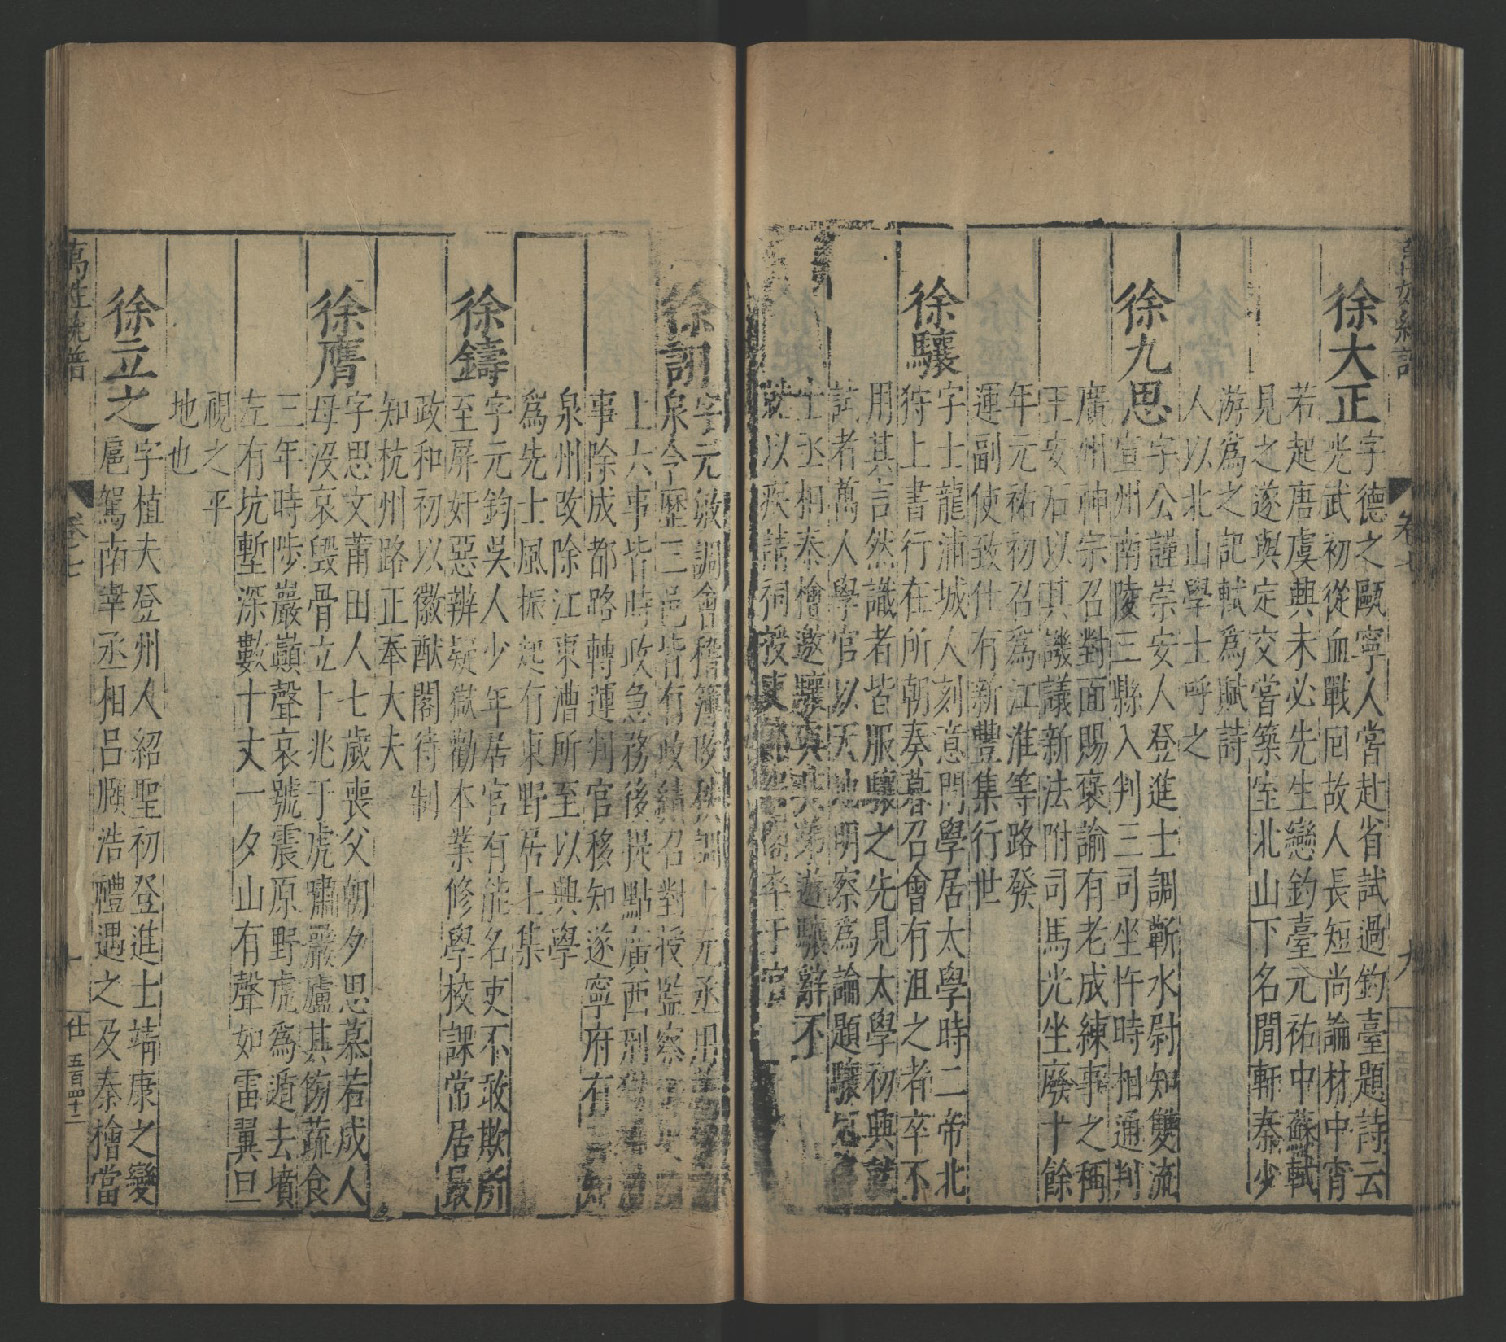 徐大正
字德之甌寧人嘗赴省試過釣臺題詩云
光武初從血戰回故人長短尚論材中宵
若起唐虞興未必先生戀釣臺元祐中蘇軾
見之遂與定交嘗築室北山下名閒軒秦少
游爲之記軾爲賦詩
人以北山學士呼之
徐九思
字公謹崇安人登進士調蘄水尉知雙流
宣州南陵三縣入判三司坐忤時相通判
廣州神宗召對面賜褒諭有老成練事之稱
王安石以其譏議新法附司馬光坐廢十餘
年元祐初召爲江淮等路發
運副使致仕有新豐集行世
徐驤
字士龍浦城人刻意問學居太學時二帝北
狩上書行在所朝奏暮召會有沮之者卒不
用其言然識者皆服驤之先見太學初興就
試者萬人學官以天地明察爲論題驤冠
士丞相秦檜邀驤與其弟遊驤辭不
就以疾請祠授吏卒于官
徐詡
字元敏調會稽簿改丞用
泉令歷三邑皆有政績召對授監察
上六事皆時政急務後提點廣西刑獄
事除成都路轉運判官移知遂寧府有
泉州改除江東漕所至以興學
爲先士風振起有東野居士集
徐鑄
字元鈞吳人少年居官有能名吏不敢欺所
至屏奸惡辨疑獄勸本業修學校課常居最
政和初以徽猷閣待制
知杭州路正奉大夫
徐膺
字思文莆田人七歲喪父朝夕思慕若成人
母沒哀毀骨立卜兆于虎嘯巖廬其傍蔬食
三年時陟巖巔聲哀號震原野虎爲遁去墳
左有坑塹深數十丈一夕山有聲如雷翼旦
視之平
地也
徐立之
字植夫登州人紹聖初登進士靖康之變
扈駕南率丞相呂頤浩禮遇之及秦檜當
萬姓統譜
卷七
十
仕
五百四十二